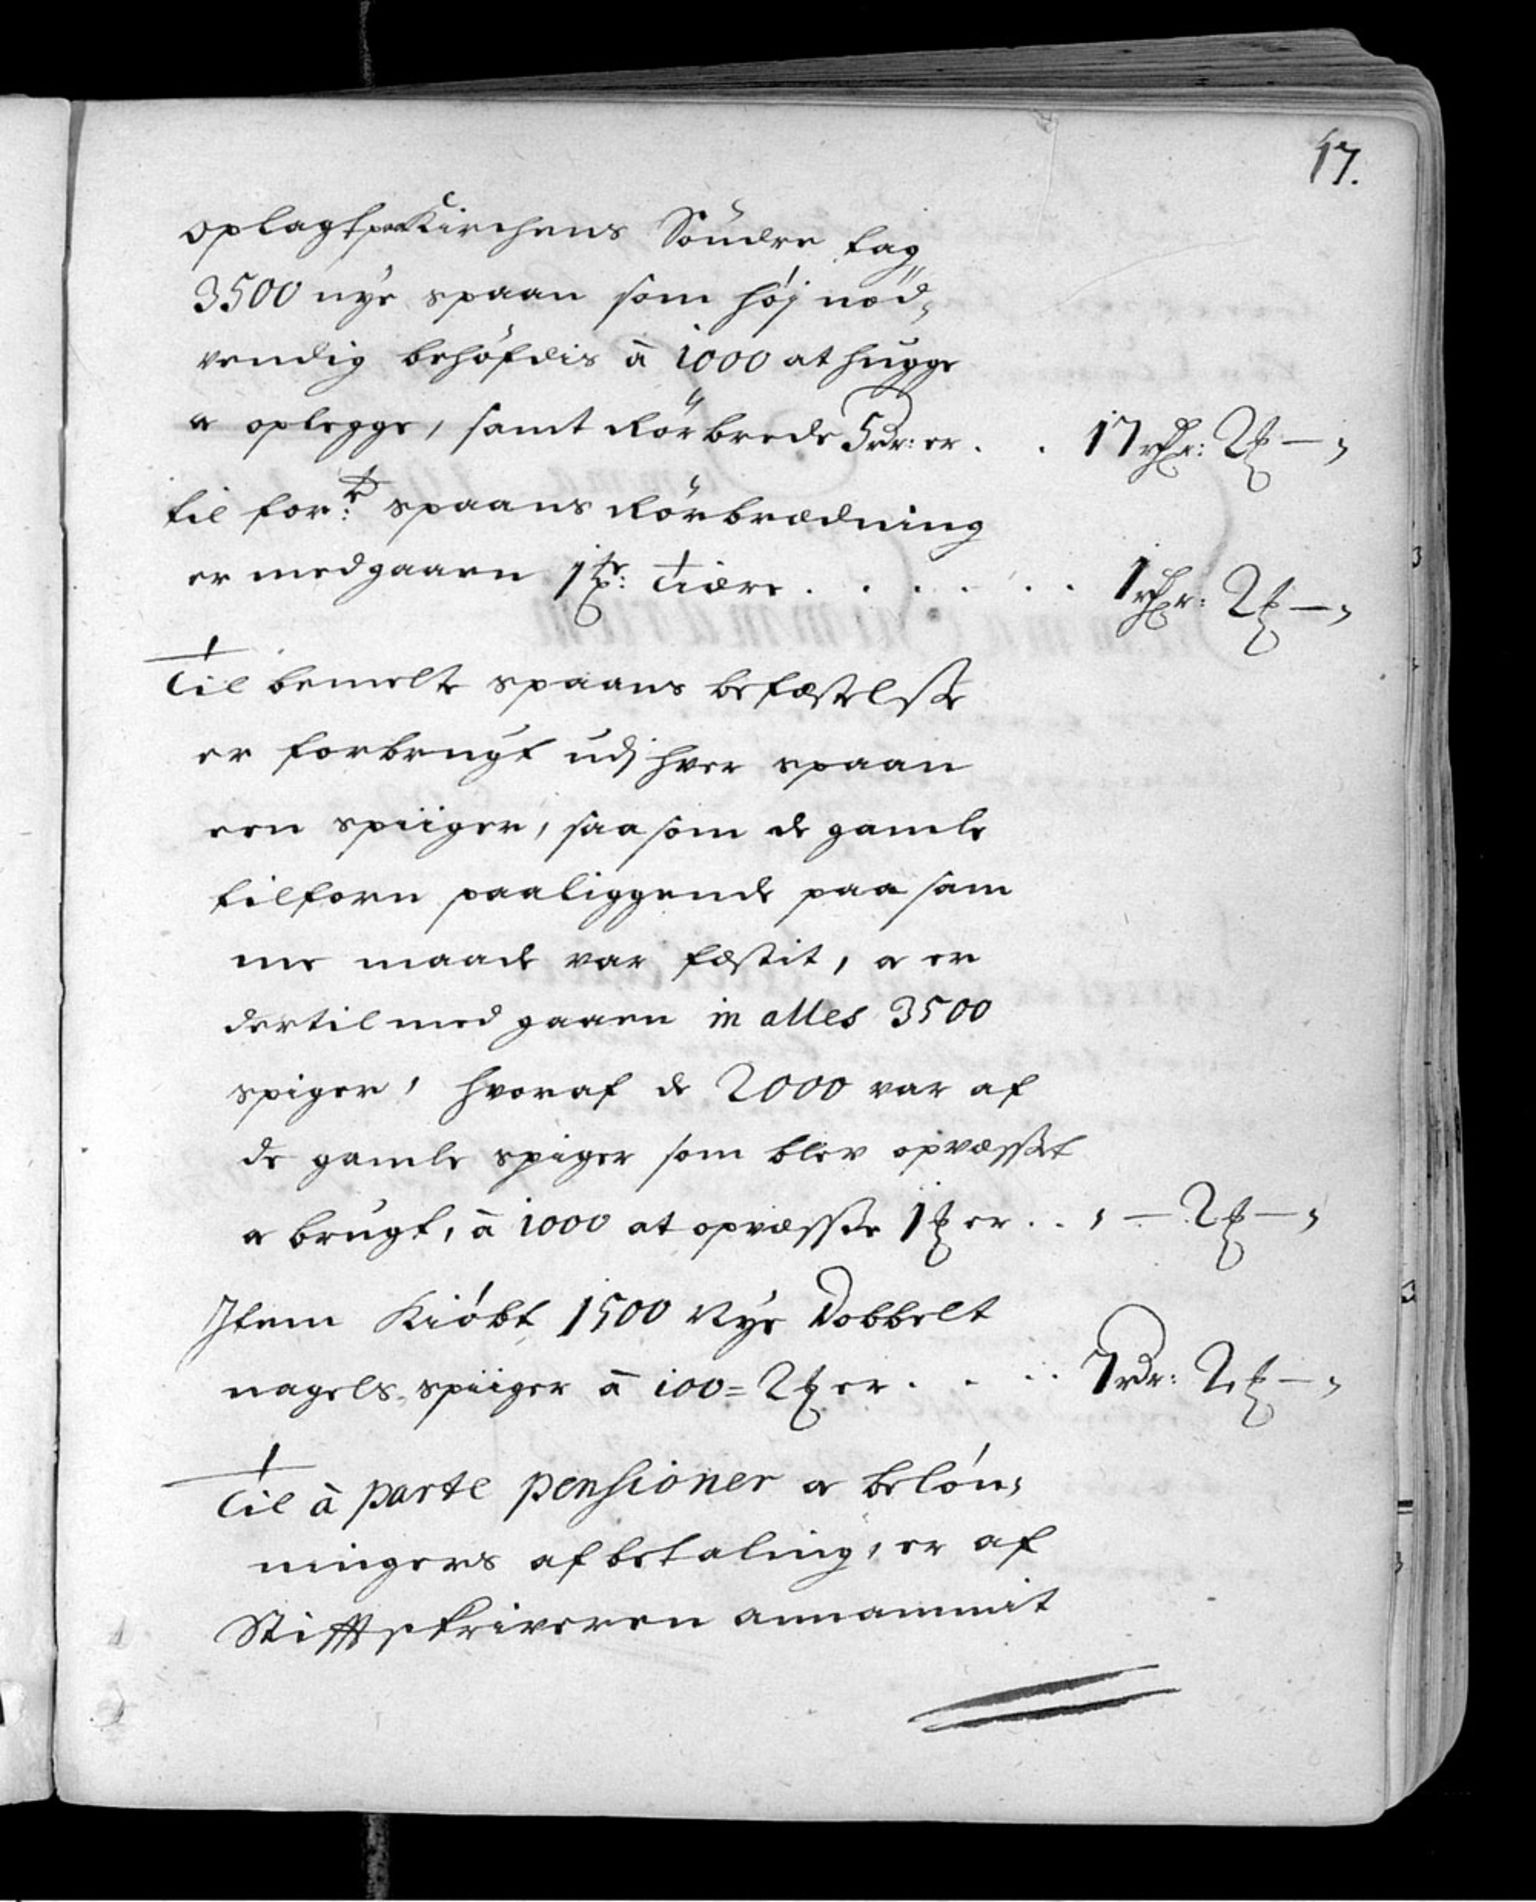 17.
oplagt paa Kirchens Söndre tag
3500 nye spaan som høj nød„
vendig behøfdis à 1000 at hugge
& oplegge, samt Rörbrede 5 rdr: er . . 17 rdr: 2 ℔ — „
til for:ne spaans Rörbrædning
er medgaaen 1 tr: Tiære . . . . . . 1 rdr: 2 ℔ — „
Til bemelte spaans befæstelsse
er forbrugt udj hver spaan
een spiiger, saasom de gamle
tilforn paaliggende paa sam
me maade var fæstit, & er
dertil med gaaen in alles 3500
spiger, hvoraf de 2000 var af
de gamle spiger som blev opvæsset
& brugt, à 1000 at opvæsse 1 ℔ er . . „ — 2 ℔ — „
Item Kiöbt 1500 Nye Dobbelt
nagels spiiger à 100 = 2 ℔ er . . . . 7 rdr: 2 ℔ — „
Til à parte pensioner & beløn„
ningers afbetaling, er af
Stifftskriveren annammit